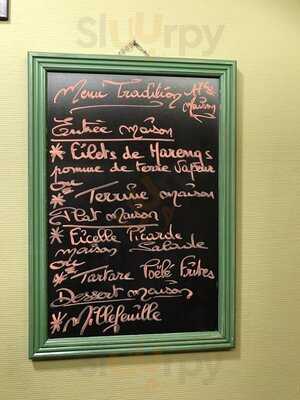 Sluurpy
Menu Tradition
Maison
Entrée maison
* Filets de Harengs
pomme de terre vapeur
ou
* Terrine maison
Plat maison
* Ficelle Picarde
maison Salade
ou
* Tartare Poêlé Frites
Dessert maison
* Millefeuille